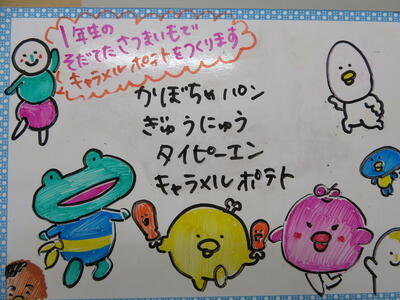 1年生の
そだてたさつまいもで
キャラメルポテトをつくります
かぼちゃパン
ぎゅうにゅう
タイピーエン
キャラメルポテト